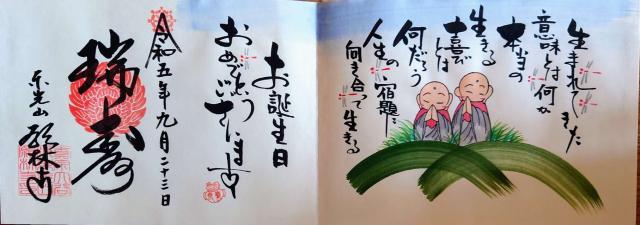 生まれてきた
意味とは何か
本当の
生きる
喜びとは
何だろう
人生の宿題に
向き合って生きる
お誕生日
おめでとう
ございます
令和五年九月二十三日
瑞寿